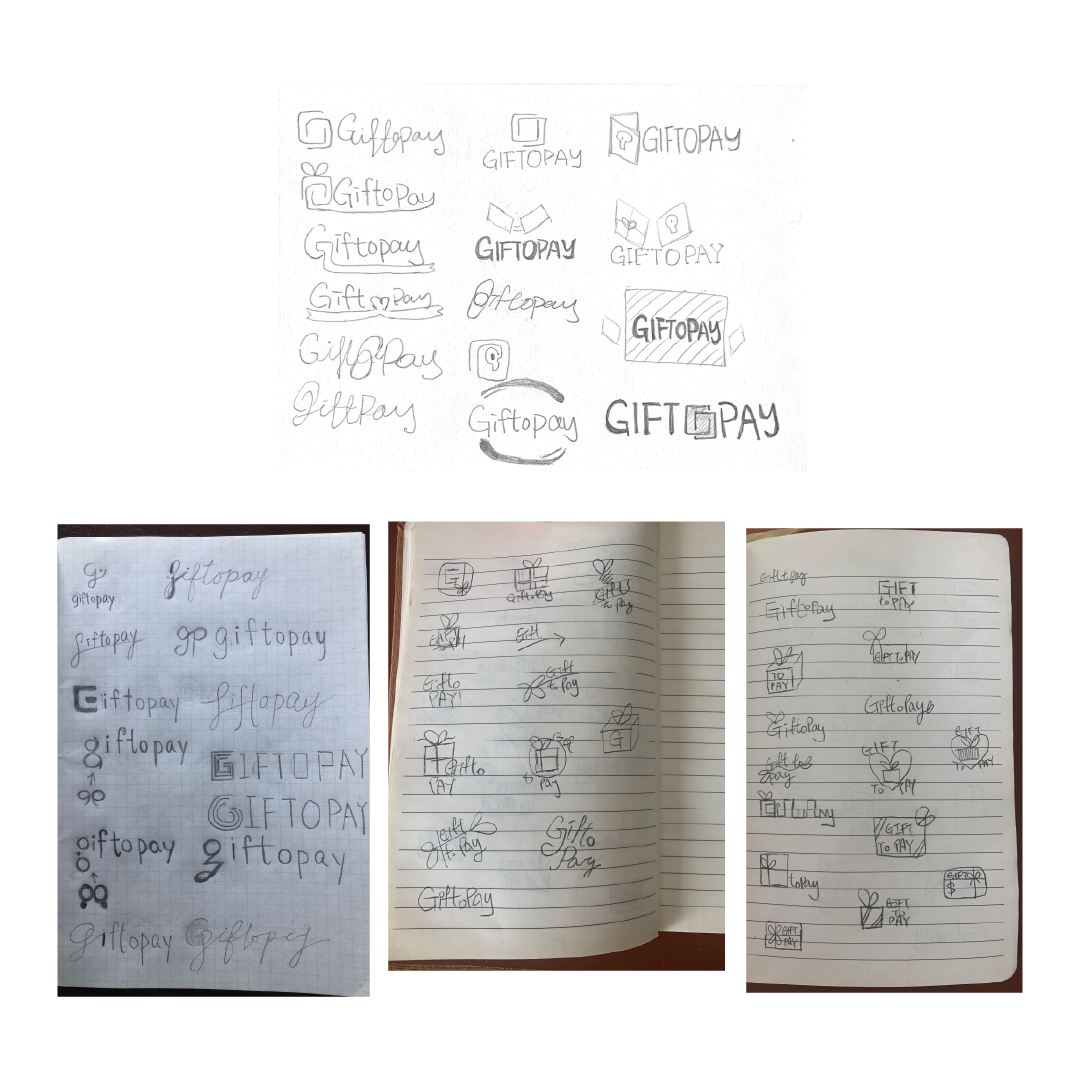 Giftopay
GIFTOPAY
GIFTOPAY
GiftoPay
Giftopay
GIFTOPAY
GIFTOPAY
Gift Pay
Giftopay
GIFTOPAY
GiftoPay
GiftPay
Giftopay
GIFT PAY
g
giftopay
giftopay
giftopay
gp giftopay
Giftopay
giftopay
giftopay
GIFTOPAY
go
GIFTOPAY
giftopay
giftopay
giftopay
giftopay
G
GiftoPay
Gifto
PAY!
Gift
to Pay
G
Gifto
PAY
to
PAY
Gift
to
Pay
GiftoPay
Giftopay
GIFT
to PAY
GiftoPay
GIFT TO PAY
TO
PAY
GiftoPay
GiftoPay
GIFT
TO PAY
GIFT
TO PAY
GIFT
TO PAY
toPay
GIFTO
$
GIFT
TO
PAY
GIFT
PAY